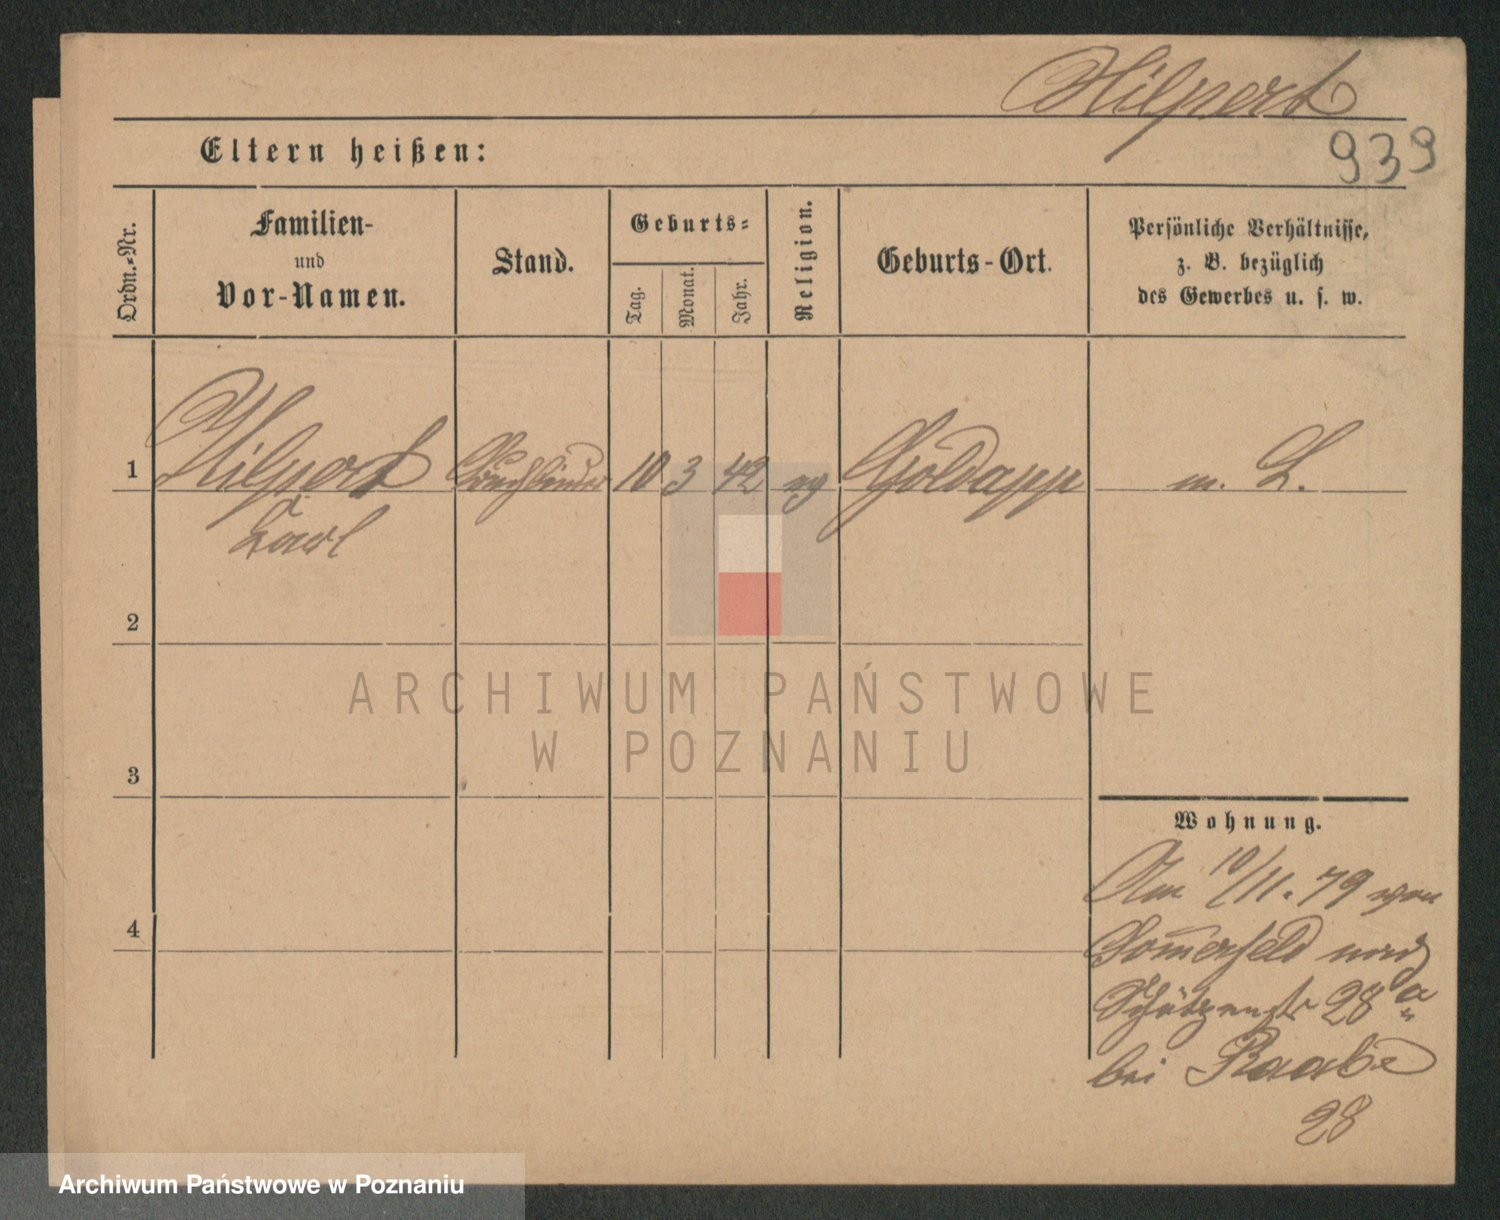 Hilpert
939
Eltern heißen:
Ordn.-Nr.
Familien-
und
Vor-Namen.
Stand.
Geburts-
Tag.
Monat.
Jahr.
Religion.
Geburts-Ort.
Persönliche Verhältnisse,
z. B. bezüglich
des Gewerbes u. s. w.
1 Hilpert Buchbinder 10 3 42 ev Goldapp m. L.
Carl
2
3
4
Wohnung.
Am 10/11. 79 von
Som̅erfeld nach
Schützenstr 28 a
bei Raabe
28
ARCHIWUM PAŃSTWOWE
W POZNANIU
Archiwum Państwowe w Poznaniu